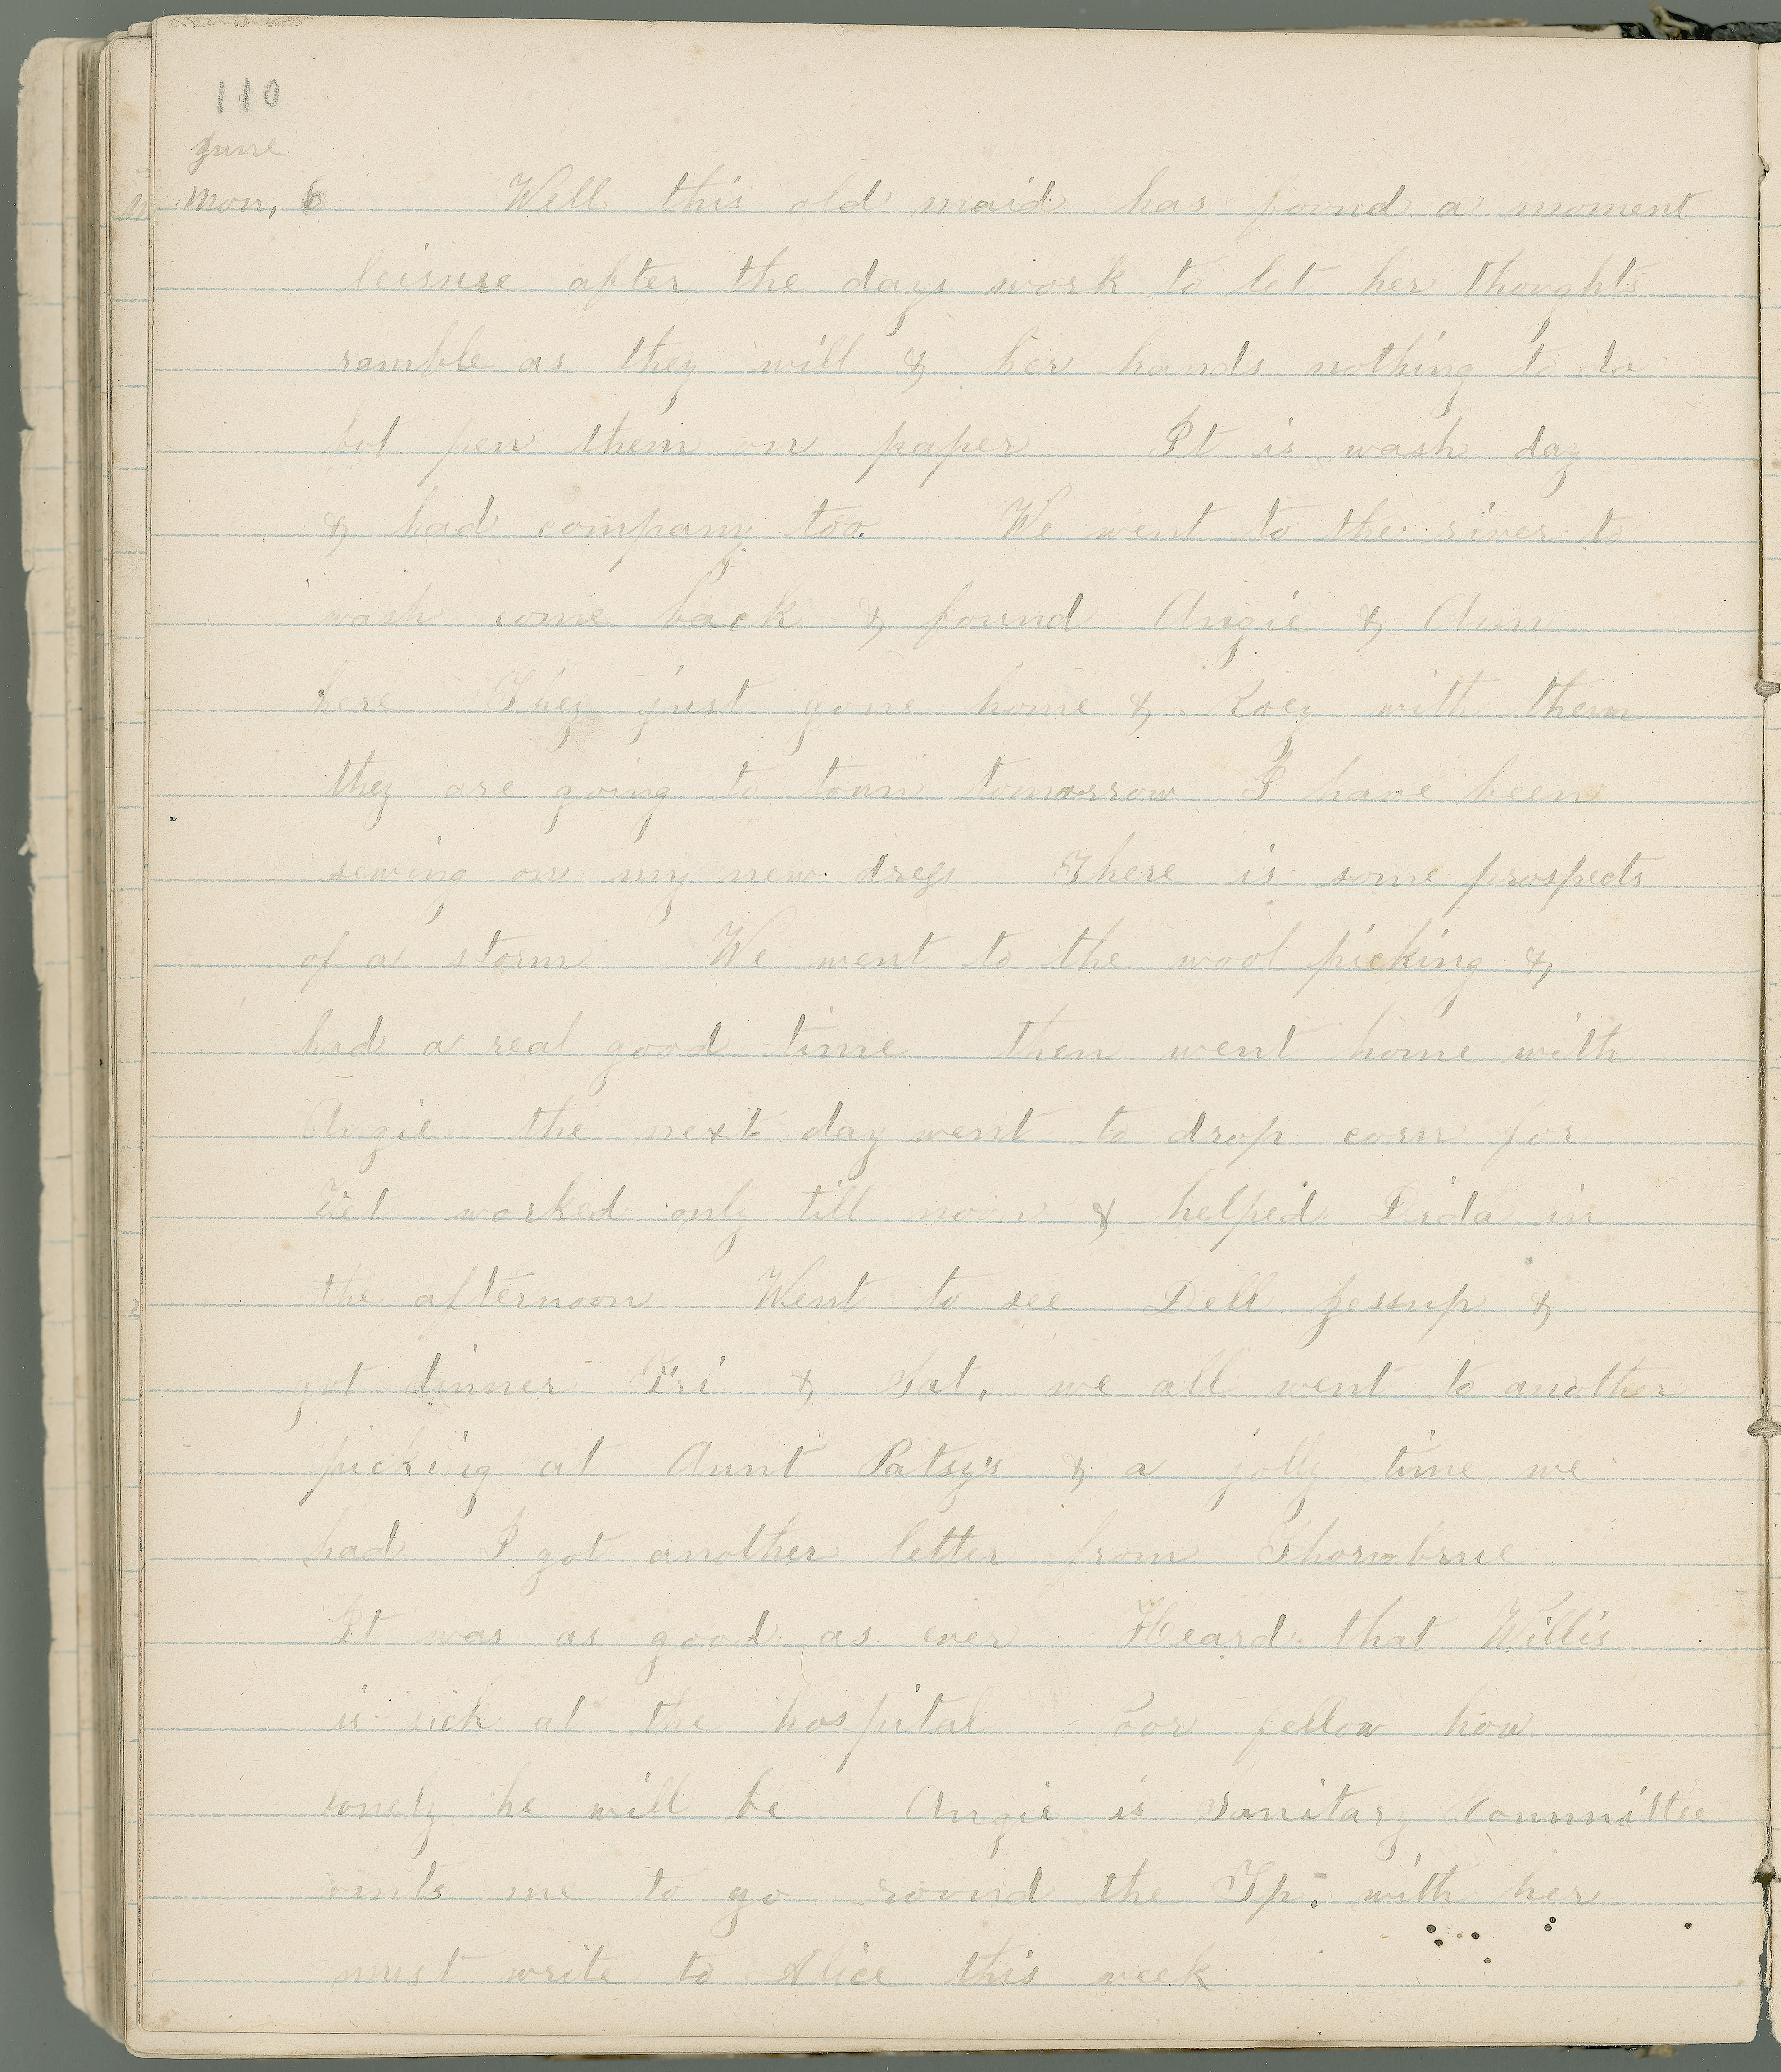 110
June
Mon, 6 Well this old maid has found a moment
leisure after the days work to let her thoughts
ramble as they will & her hands nothing to do
but pen them on paper It is wash day
& had company too. We went to the river to
wash come back & found Angie & Ann
here They just gone home & Roey with them
they are going to town tomorrow I have been
sewing on my new dress There is some prospects
of a storm We went to the wool picking &
had a real good time then went home with
Angie the next day went to drop corn for
worked only till noon & helped in
the afternoon Went to see Dell Jessup &
got dinner Fri & Sat, we all went to another
picking at Aunt Patsy's & a jolly time we
had I got another letter from Thornbrue
It was as good as ever Heard that Willis
is sick at the hospital Poor fellow how
lonely he will be Angie is Sanitary Committee
wnts me to go round the Tp. with her
must write to Alice this week